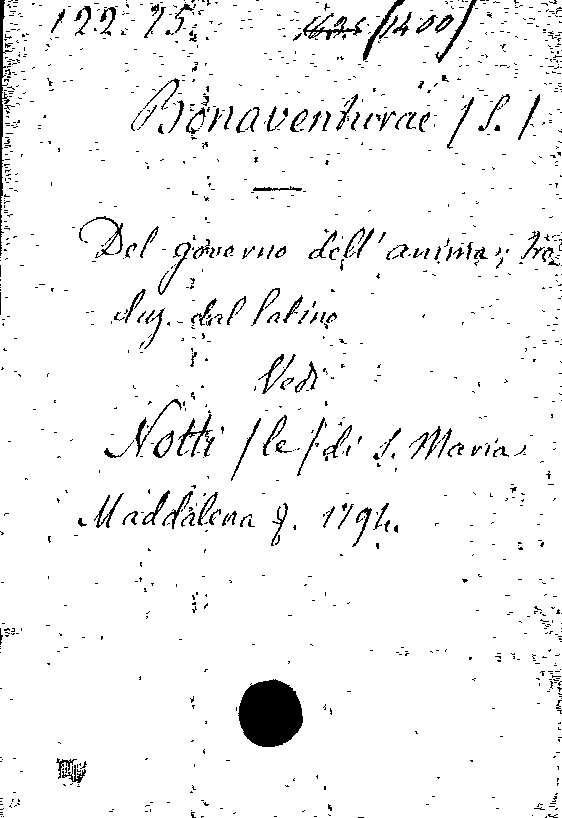 122. 25. (1400)
Bonaventurae (S.)
Del governo dell' anima; tra
duz. dal latino
Vedi
Notti (le) di S. Maria
Maddalena 8. 1794.